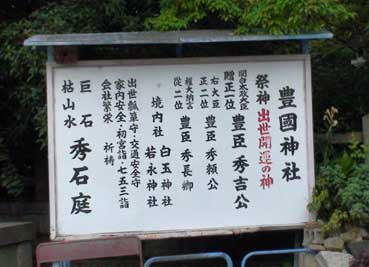 豊國神社
祭神 出世開運の神
関白太政大臣
贈正一位 豊臣 秀吉公
右大臣
正二位 豊臣 秀頼公
権大納言
従二位 豊臣 秀長卿
境内社 白玉神社
若永神社
出世瓢箪守・交通安全守
家内安全・初宮詣・七五三詣
会社繁栄 祈祷
巨石
枯山水 秀石庭